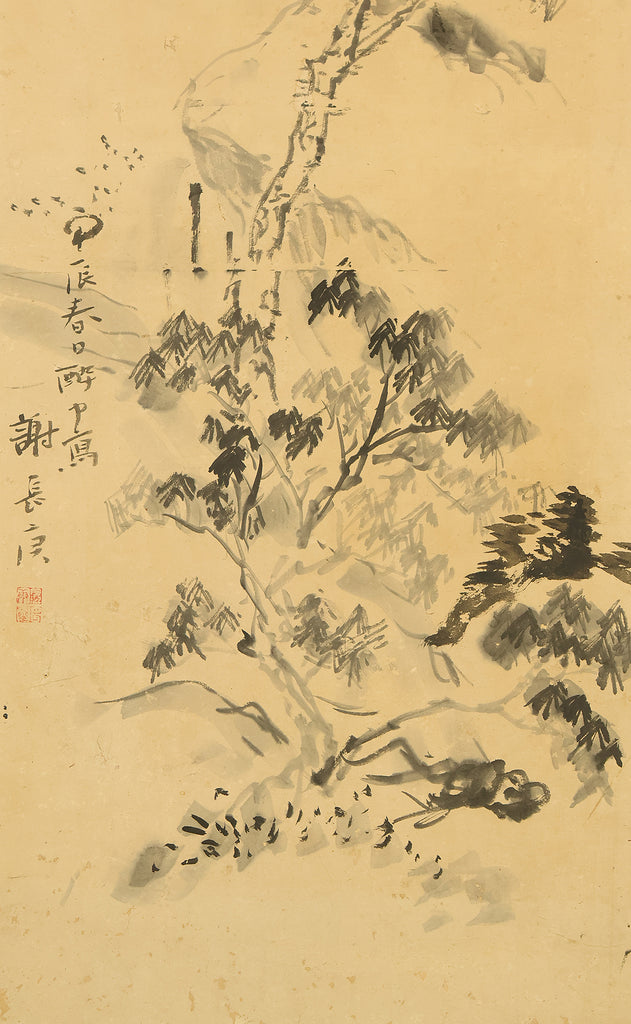 甲辰春日醉中寫
謝長庚